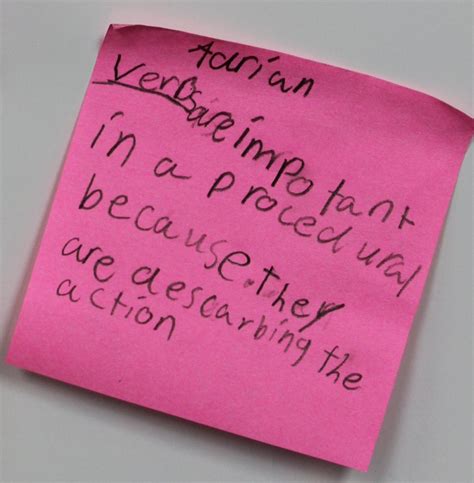 Adrian
Verbs are important
in a procedural
because they
are descarbing the
action